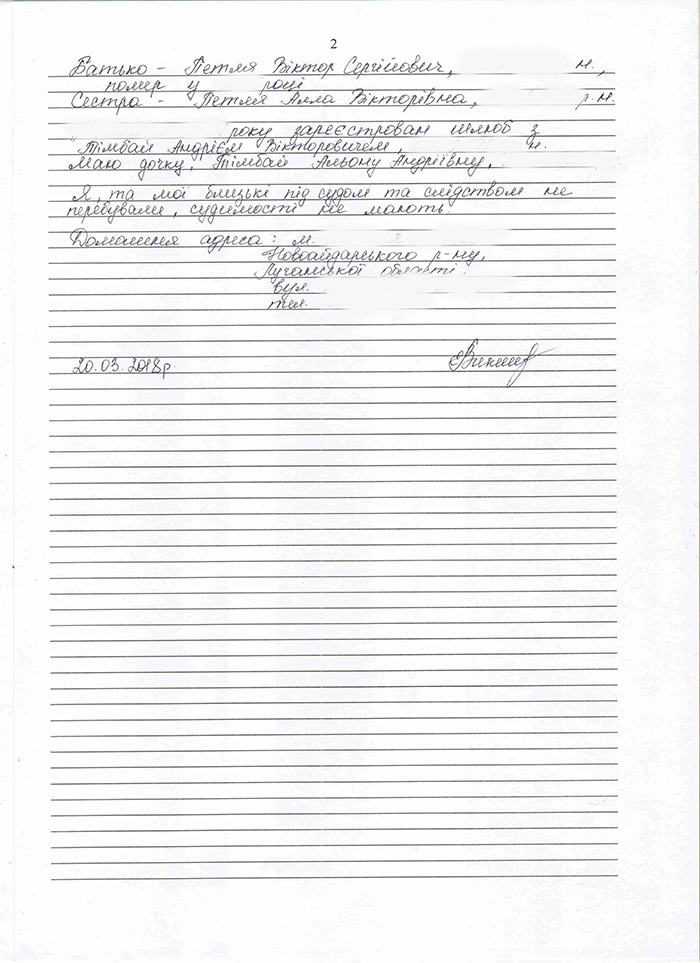 2
Батько - Петля Віктор Сергійович, н.,
помер у році
Сестра - Петля Алла Вікторівна, р.н.
року зареєстрован шлюб з
Тімбай Андрієм Вікторовичем, н.
Маю дочку, Тімбай Альону Андріївну,
Я, та мої близькі під судом та слідством не
перебували, судимості не мають.
Домашня адреса: м.
Новоайдарського р-ну,
Луганської області,
вул.
тел.
20.03.2018р.